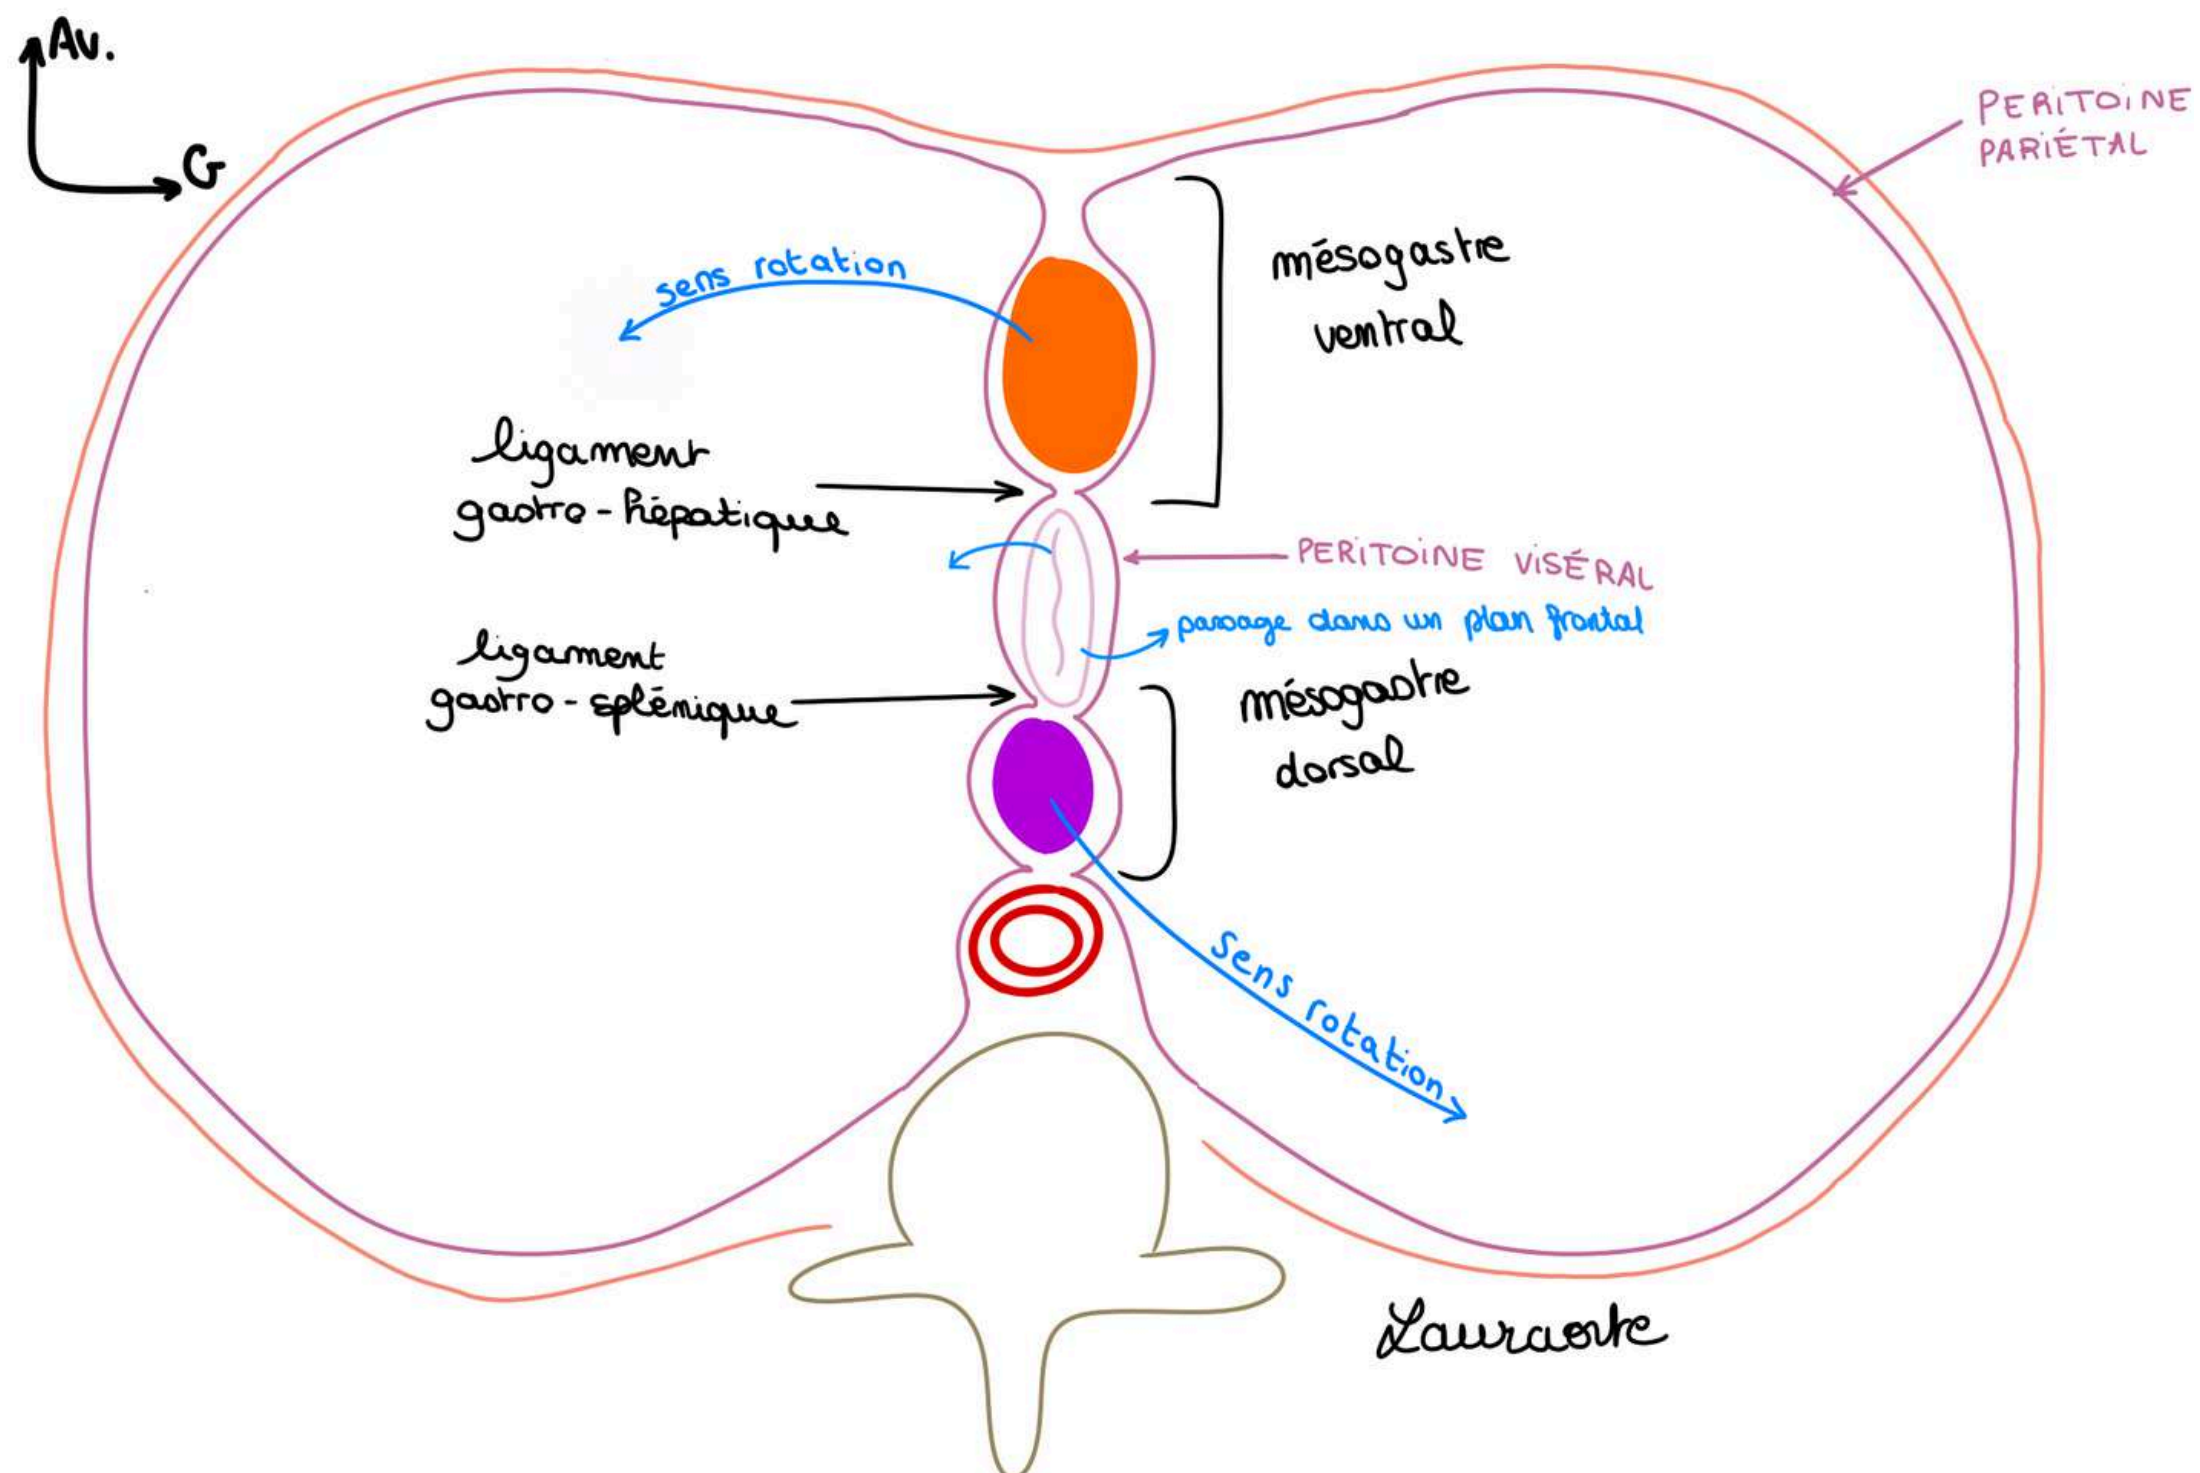 Av.
G
PERITOINE
PARIÉTAL
sens rotation
mésogastre
ventral
ligament
gastro-hépatique
PERITOINE VISÉRAL
passage dans un plan frontal
ligament
gastro-splénique
mésogastre
dorsal
Sens rotation